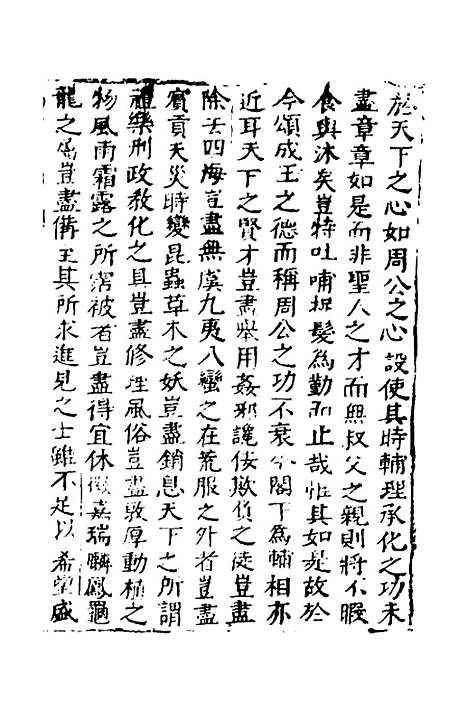 於天下之心如周公之心設使其時輔理承化之功未
盡章章如是而非聖人之才而無叔父之親則將不暇
食與沐矣豈特吐哺捉髮為勤而止哉惟其如是故於
今頌成王之德而稱周公之功不衰今閣下為輔相亦
近耳天下之賢才豈盡舉用姦邪讒佞欺負之徒豈盡
除去四海豈盡無虞九夷八蠻之在荒服之外者豈盡
賓貢天災時變昆蟲草木之妖豈盡銷息天下之所謂
禮樂刑政教化之具豈盡修理風俗豈盡敦厚動植之
物風雨霜露之所霑被者豈盡得宜休徵嘉瑞麟鳳龜
龍之屬豈盡備至其所求進見之士雖不足以希望盛